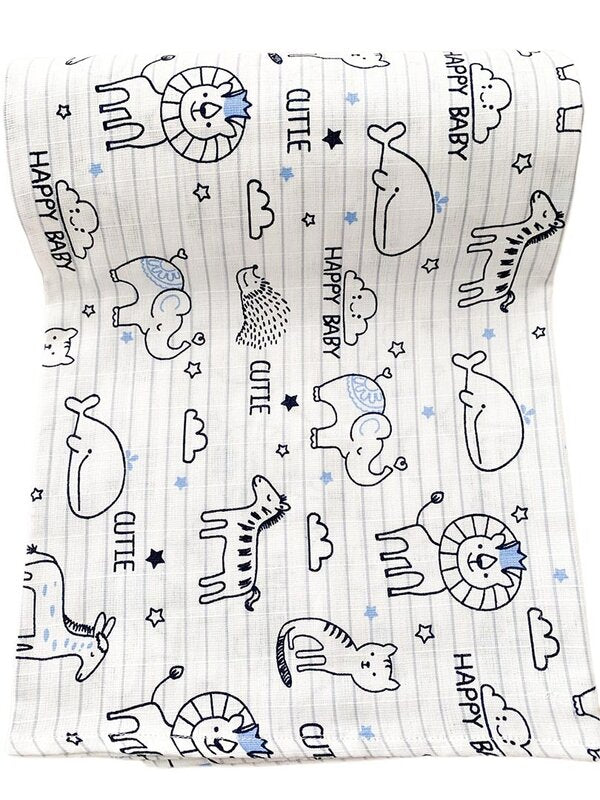 HAPPY BABY
CUTIE
HAPPY BABY
HAPPY BABY
CUTIE
CUTIE
HAPPY BABY
CUTIE